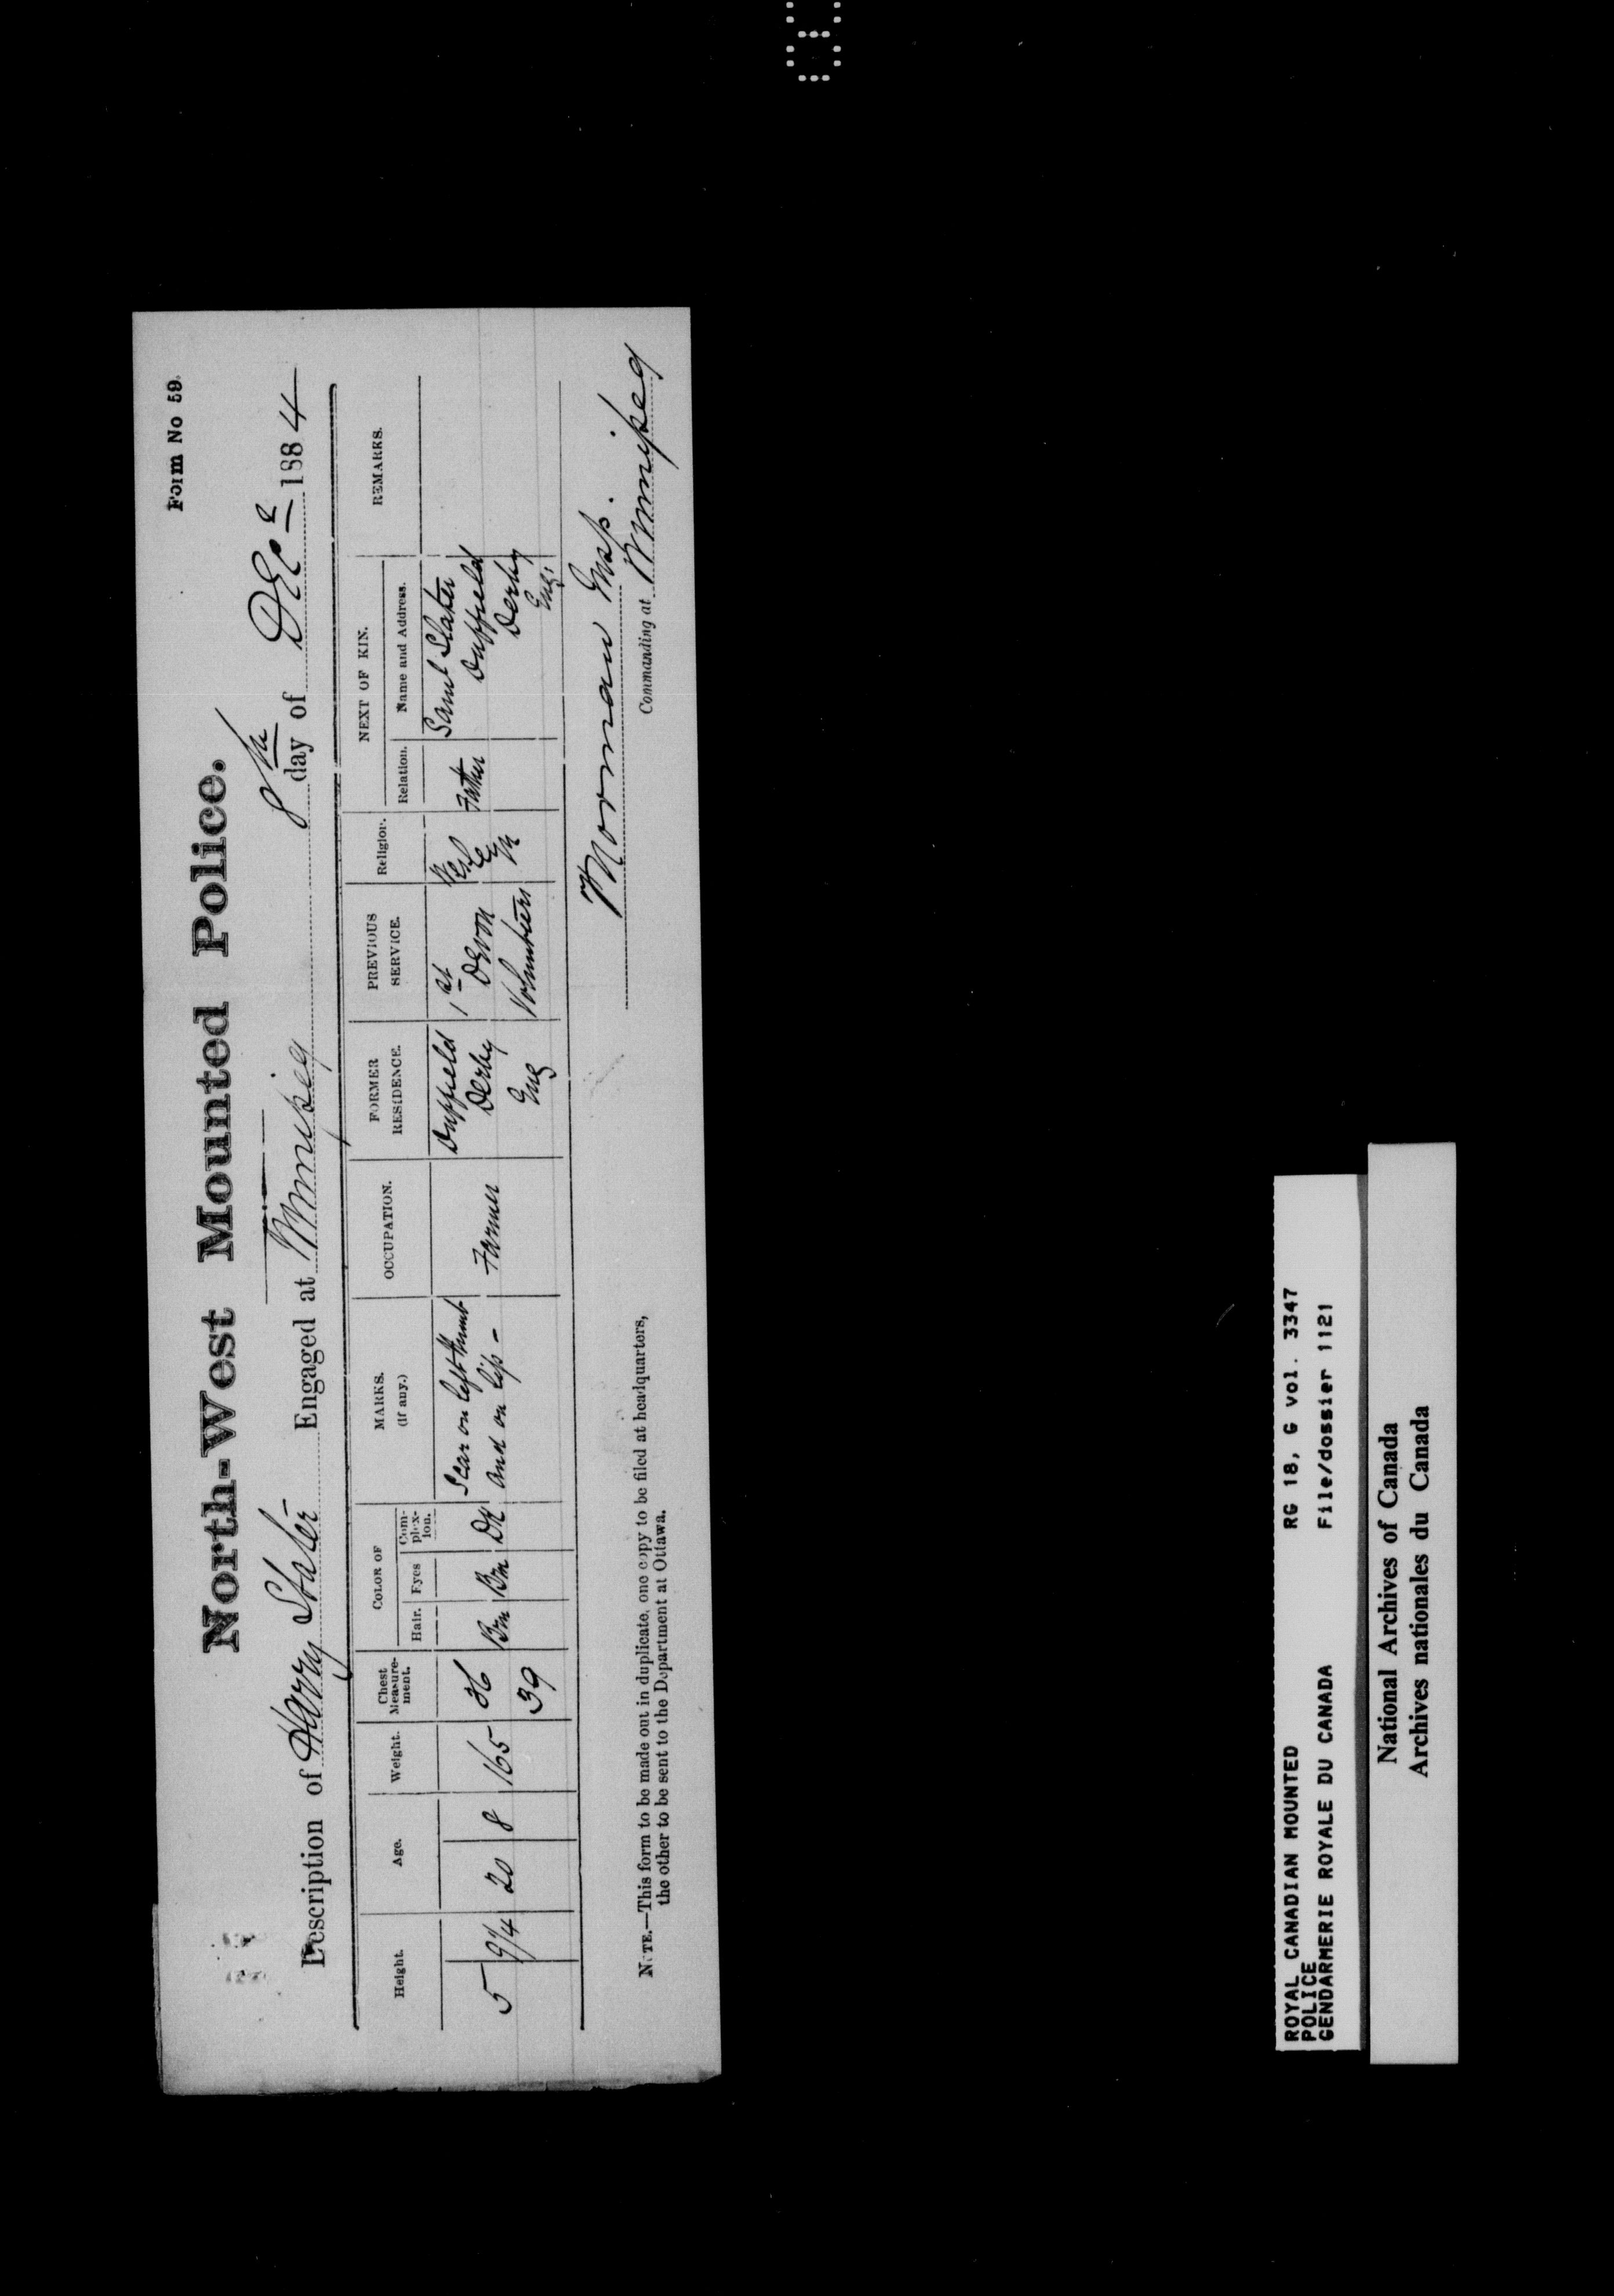 Form No 59.
North-West Mounted Police.
Description of Harry Slater Engaged at Winnipeg 8th day of DEcr 1884
Height. Age. Weight. Chest Measurement. COLOR OF Hair. Eyes Complexion. MARKS. (if any.) OCCUPATION. FORMER RESIDENCE. PREVIOUS SERVICE. Religion. NEXT OF KIN. Relation. Name and Address. REMARKS.
5 9¼ 20 8 165 36 Brn Brn Dk Scar on left thumb Farmer Duffield 1st Father Saml Slater
39 and on lip - Derby Devon Duffield
Eng Volunteers Derby
Eng.
Norman Insp.
Commanding at Winnipeg
NOTE.—This form to be made out in duplicate, one copy to be filed at headquarters,
the other to be sent to the Department at Ottawa.
ROYAL CANADIAN MOUNTED RG 18, G vol. 3347
POLICE
GENDARMERIE ROYALE DU CANADA File/dossier 1121
National Archives of Canada
Archives nationales du Canada